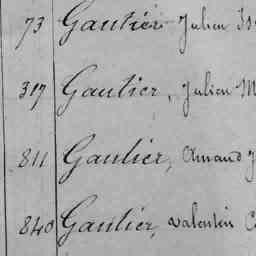 73 Gautier Julien
317 Gautier, Julien M
811 Gaulier, Amand J
840 Gaulier, Valentin C